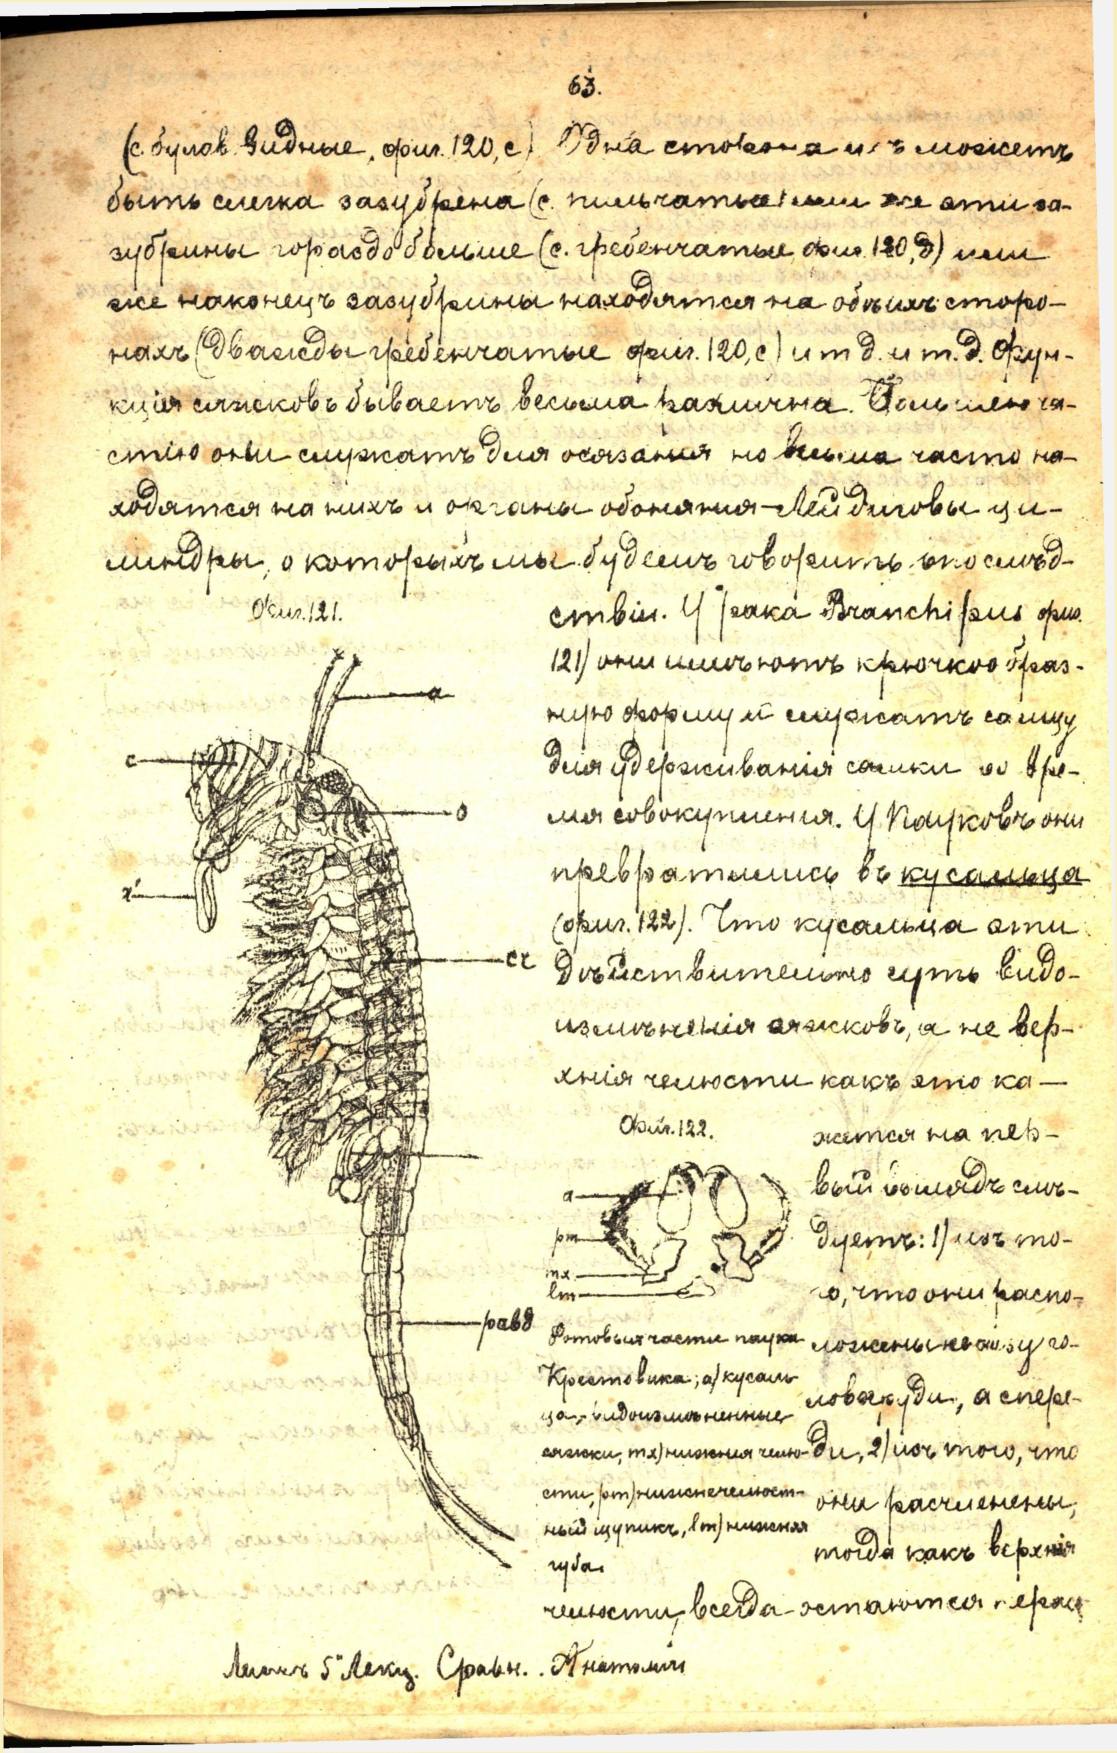 63.
(с. булав. видные, фиг. 120, с) Одна сторона ихъ можетъ
быть слегка зазубрена (с. пильчатые) или же эти за-
зубрины гораздо больше (с. гребенчатые фиг. 120, д) или
же наконецъ зазубрины находятся на обѣихъ сторо-
нахъ (дважды гребенчатые фиг. 120, с) и т д. и т. д. Фун-
кція сяжковъ бываетъ весьма различна. Большею ча-
стію они служатъ для осязанія но весьма часто на-
ходятся на нихъ и органы обонянія - Лейдиговы ци-
линдры, о которыхъ мы будемъ говорить впослѣд-
ствіи. У рака Branchipus фиг.
121) они имѣютъ крючкообраз-
ную форму и служатъ самцу
для удерживанія самки во вре-
мя совокупленія. У Пауковъ они
превратились въ кусальца
(фиг. 122). Что кусальца эти
дѣйствительно суть видо-
измѣненія сяжковъ, а не вер-
хнія челюсти какъ это ка-
жется на пер-
вый взглядъ слѣ-
дуетъ: 1) изъ то-
го, что они распо-
ложены не внизу го-
ловогруди, а спере-
ди, 2) изъ того, что
они расчленены,
тогда какъ верхнія
челюсти, всегда остаются нерасч
Фиг. 121.
а
с
о
х'
ст
равд
Фиг. 122.
а
pm
mx
lm
Ротовыя части паука
Крестовика; а) кусаль-
ца, видоизмѣненные
сяжки, mx) нижнія челю-
сти, pm) нижнечелюст-
ный щупикъ, lm) нижняя
губа.
Листъ 5й Лекц. Сравн. Анатоміи